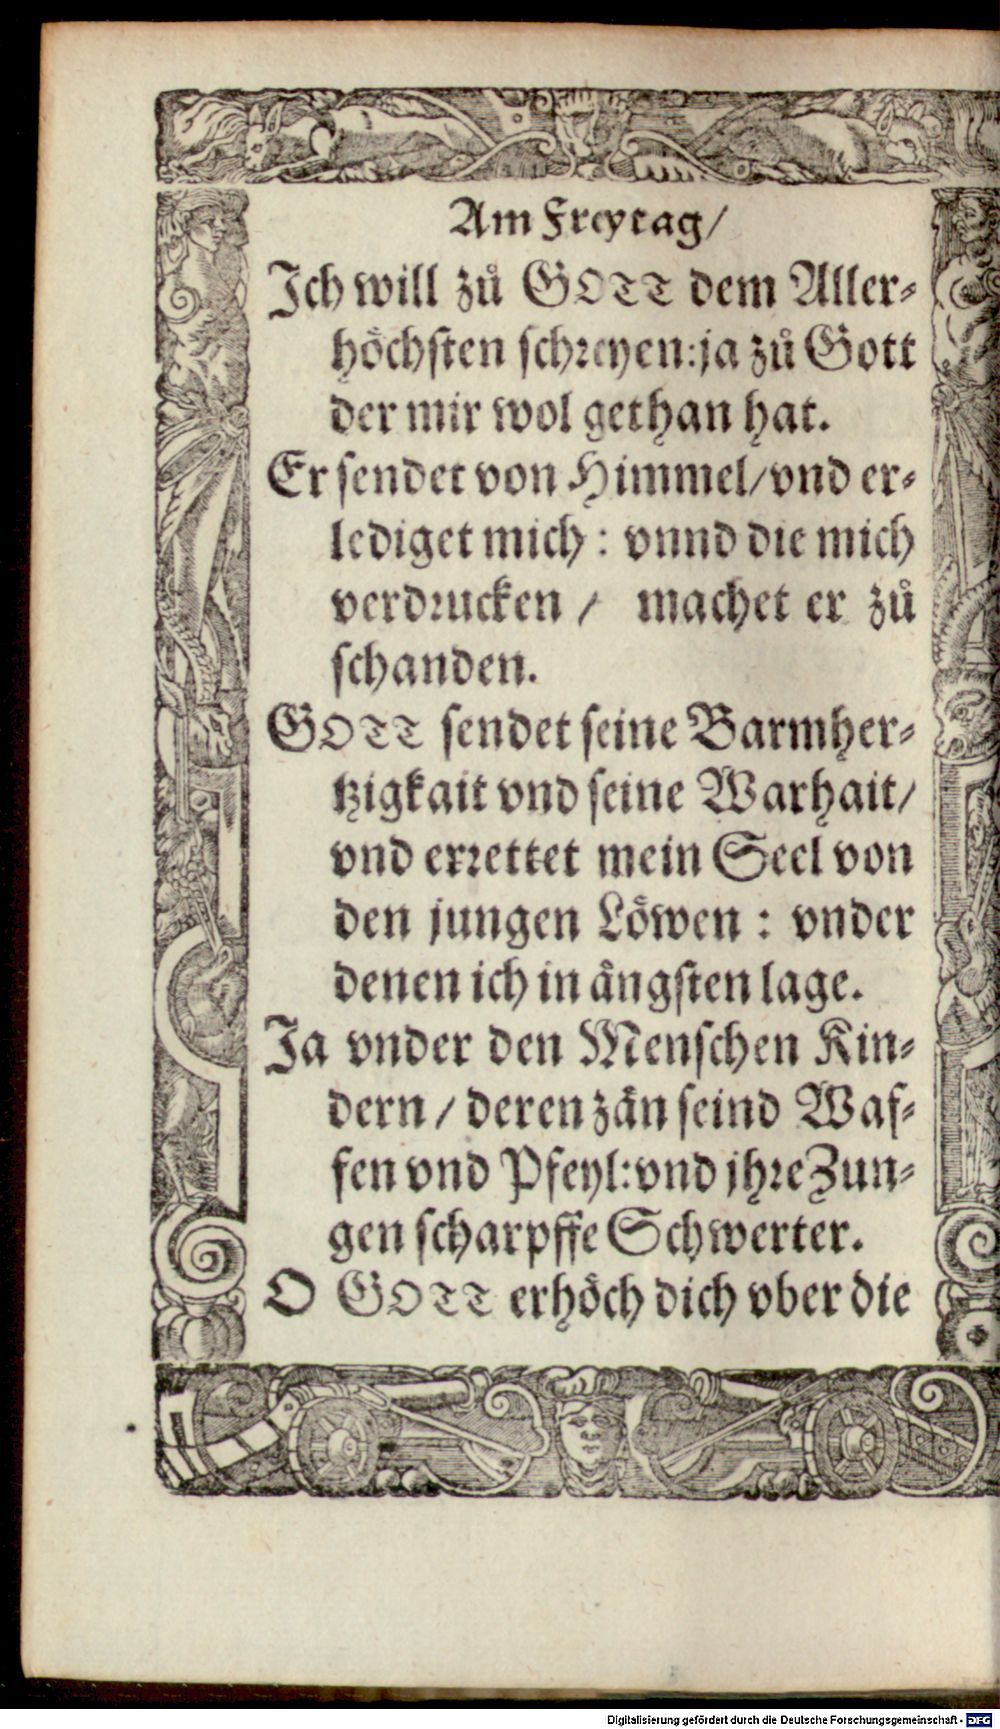 Am Freytag/
Ich will zů GOTT dem Aller⸗
höchsten schreyen:ja zů Gott
der mir wol gethan hat.
Er sendet von Himmel/vnd er⸗
lediget mich : vnnd die mich
verdrucken / machet er zů
schanden.
GOTT sendet seine Barmher⸗
tzigkait vnd seine Warhait/
vnd errettet mein Seel von
den jungen Löwen : vnder
denen ich in ängsten lage.
Ja vnder den Menschen Kin⸗
dern / deren zän seind Waf⸗
fen vnd Pfeyl:vnd jhre Zun⸗
gen scharpffe Schwerter.
O GOTT erhöch dich vber die
Digitalisierung gefördert durch die Deutsche Forschungsgemeinschaft - DFG